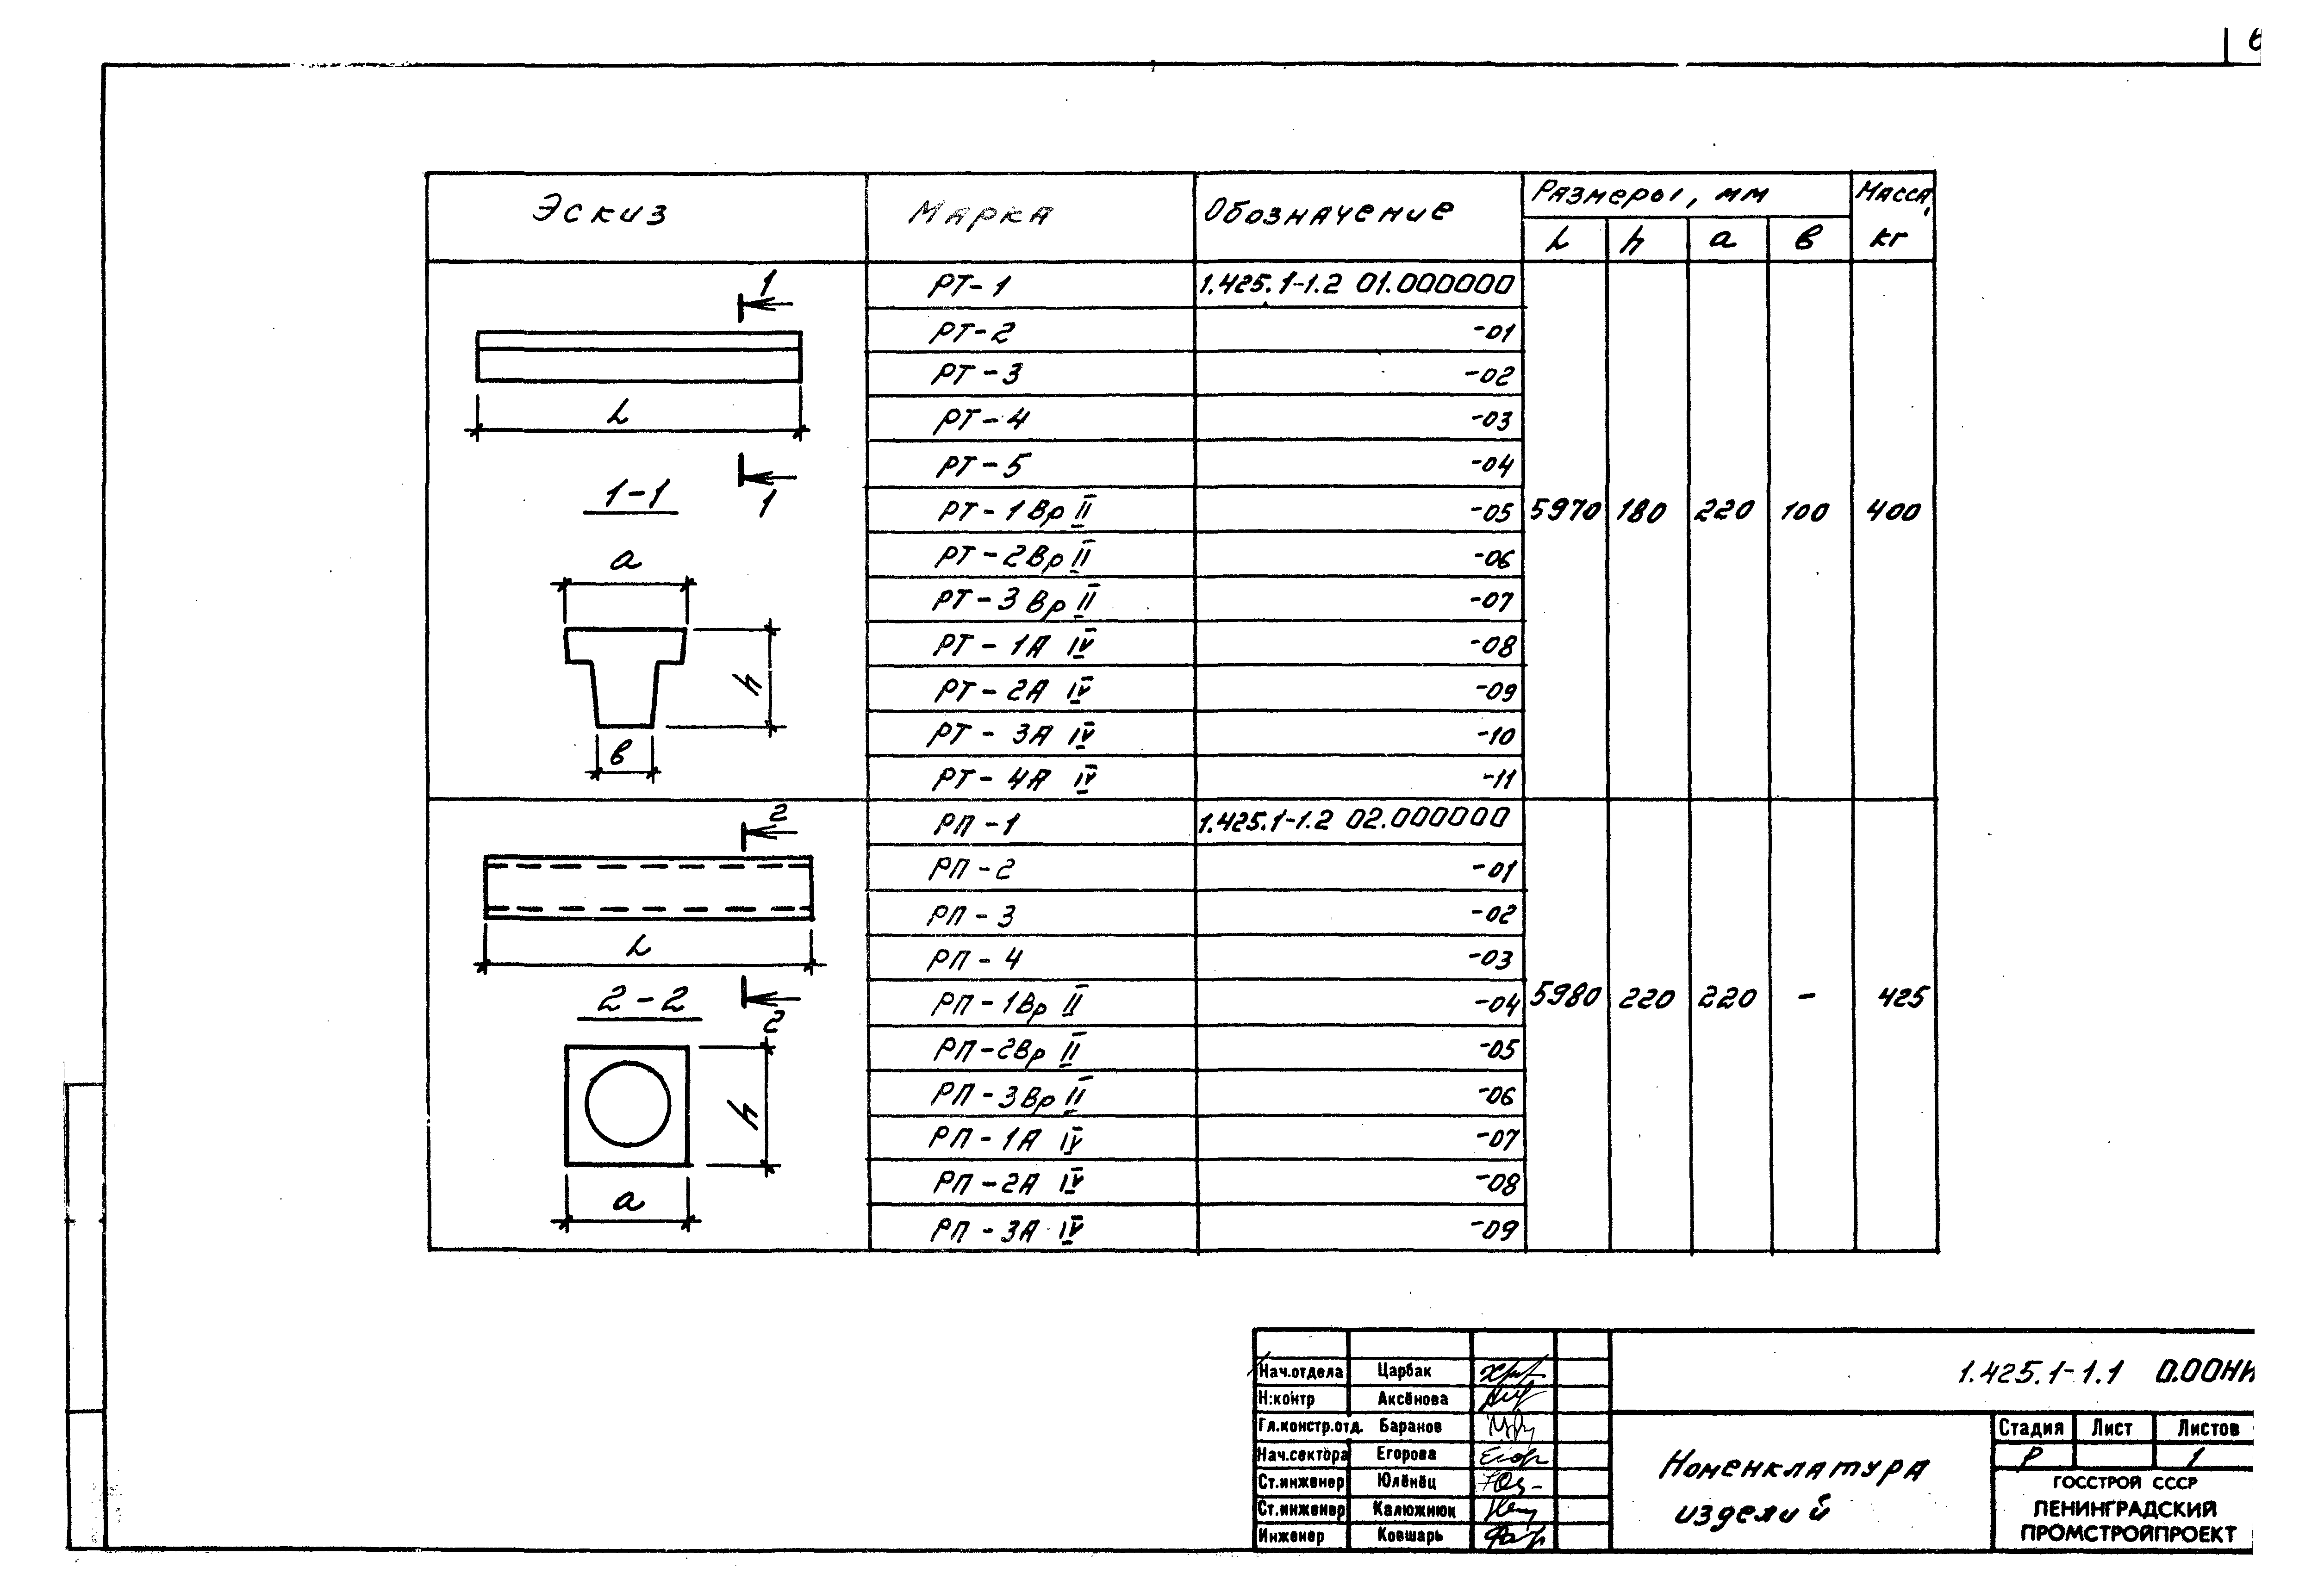 6
Эскиз Марка Обозначение Размеры, мм Масса, кг
L h а в
РТ-1 1.425.1-1.2 01.000000
РТ-2 -01
РТ-3 -02
РТ-4 -03
РТ-5 -04
РТ-1Вр II -05 5970 180 220 100 400
РТ-2Вр II -06
РТ-3Вр II -07
РТ-1А IV -08
РТ-2А IV -09
РТ-3А IV -10
РТ-4А IV -11
1
L
1
1-1
а
h
в
РП-1 1.425.1-1.2 02.000000
РП-2 -01
РП-3 -02
РП-4 -03
РП-1Вр II -04 5980 220 220 - 425
РП-2Вр II -05
РП-3Вр II -06
РП-1А IV -07
РП-2А IV -08
РП-3А IV -09
2
L
2
2-2
h
а
Нач.отдела Царбак
Н:контр Аксёнова
Гл.констр.отд. Баранов
Нач.сектора Егорова
Ст.инженер Юлёнец
Ст.инженер Калюжнюк
Инженер Ковшарь
1.425.1-1.1 0.00НИ
Номенклатура
изделий
Стадия Лист Листов
Р 1
ГОССТРОЙ СССР
ЛЕНИНГРАДСКИЙ
ПРОМСТРОЙПРОЕКТ